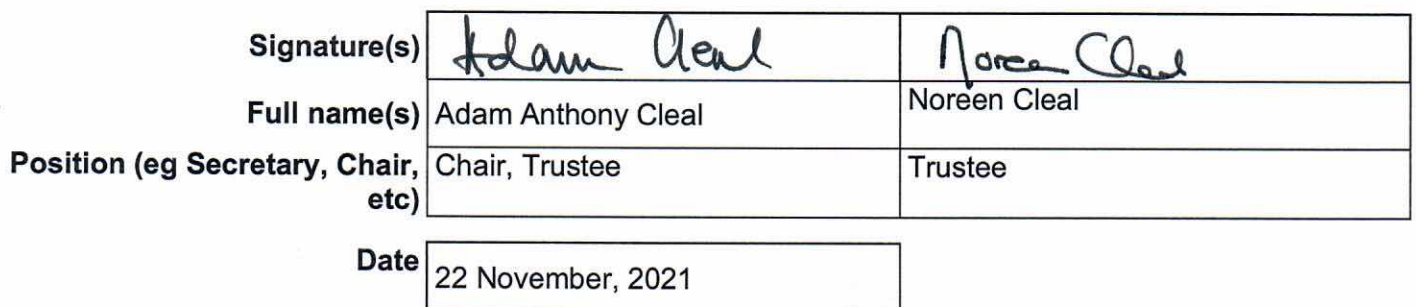 Signature(s) Adam Cleal Noreen Cleal
Full name(s) Adam Anthony Cleal Noreen Cleal
Position (eg Secretary, Chair, Chair, Trustee Trustee
etc)
Date 22 November, 2021